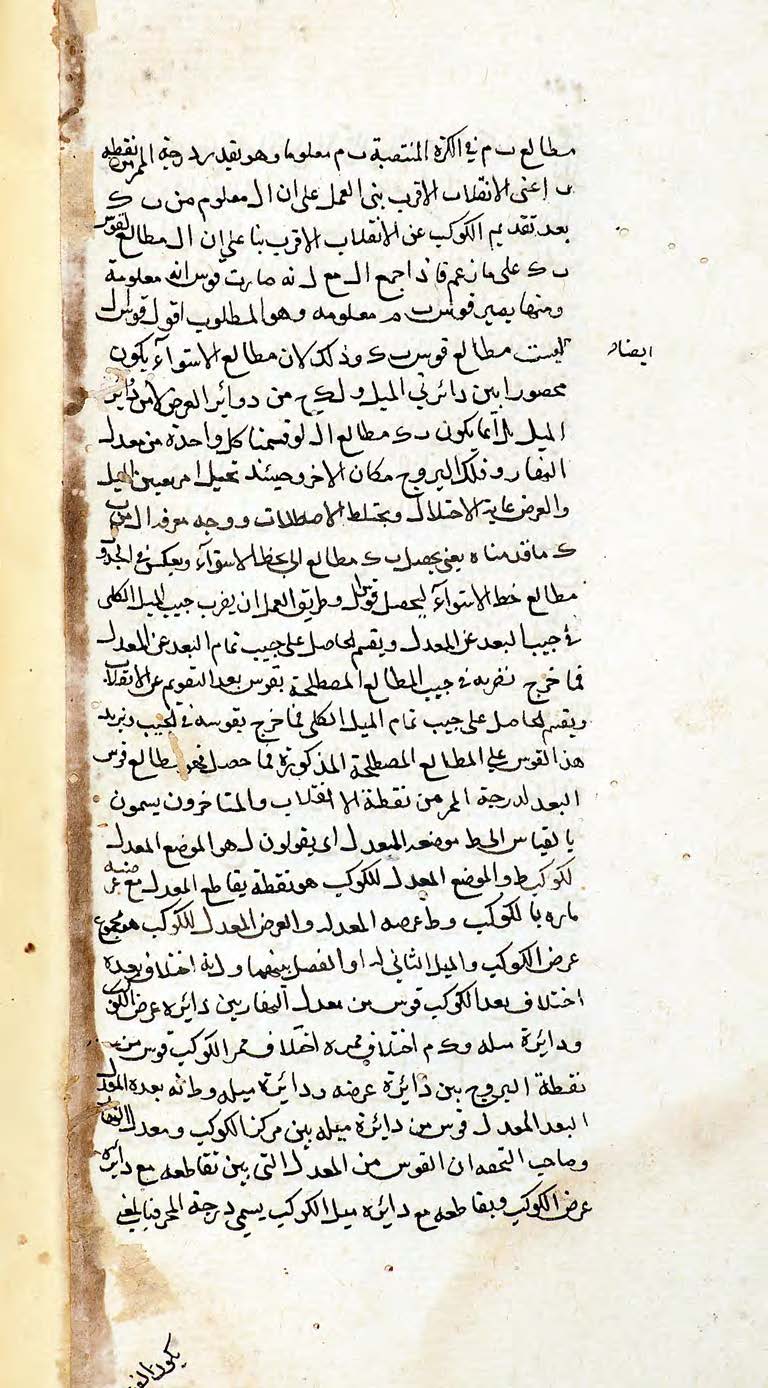 مطالع ب م في الكرة المنتصبة ب م معلوما وهو بقدر درجة الممر من نقطة
ب اعنى الانقلاب الاقرب بنى العمل على ان ال معلوم من ب ك
بعد تقديم الكوكب عن الانقلاب الاقرب بنا على ان ال مطالع لقوس
ب ك على ما زعم فاذا جمع ال مع ل نه صارت قوس انه معلومة
ومنها يصير قوس ب م معلومه وهو المطلوب اقول قوس ال
ليست مطالع قوس ب ك وذلك لان مطالع الاستوآء يكون
ايضاه
محصورا بين دائرتي الميل و ل ك ح من دوائر العرض لا من دائر
الميل بل انما يكون ب ك مطالع ال لو قسمنا كل واحدة من معدل
النهار وفلك البروج مكان الاخر وحينئذ تحيل امر بعين الميل
والعرض غاية الاختلال ويختلط الاصطلاحات ووجه معرفة ال من ب
ك ما قدمناه يعنى بجعل ب ك مطالع ال بخط الاستوآء ويعكس في الجدو
مطالع خط الاستوآء ليحصل قوس ال وطريق العمل ان يضرب جيب الميل الكلى
في جيب البعد عن المعدل ويقسم الحاصل على جيب تمام البعد عن المعدل
فما خرج نضربه في جيب المطالع المصطلحة بقوس بعد التقويم عن الانقلاب
ويقسم الحاصل على جيب تمام الميل الكلى فما خرج بقوسه في الجيب ونزيد
هذا القوس على المطالع المصطلحة المذكورة فما حصل فهو مطالع قوس
البعد لدرجة الممر من نقطة الانقلاب والمتاخرون يسمون
بالقياس الى ط موضعه المعدل اى يقولون ل هو الموضع المعدل
لكوكب ط والموضع المعدل للكوكب هو نقطة يقاطع المعدل مع عرضيه
ماره بالكوكب و ط ل عرضه المعدل والعرض المعدل للكوكب هو مجموع
عرض الكوكب والميل الثاني له او الفصل بينهما و ل نه اختلاف بعده
اختلاف بعد الكوكب قوس من معدل النهار بين دائرة عرض الكوكب
ودائرة ميله و ك م اختلاف ممره اختلاف ممر الكوكب قوس من
نقطة البروج بين دائرة عرضه ودائرة ميله و ط نه بعده المعدل
البعد المعدل قوس من دائرة ميله بين مركز الكوكب ومعدل النهار
وصاحب التحفه ان القوس من المعدل التى بين تقاطعه مع دائرة
عرض الكوكب وتقاطعه مع دائرة ميل الكوكب يسمى درجة الممر